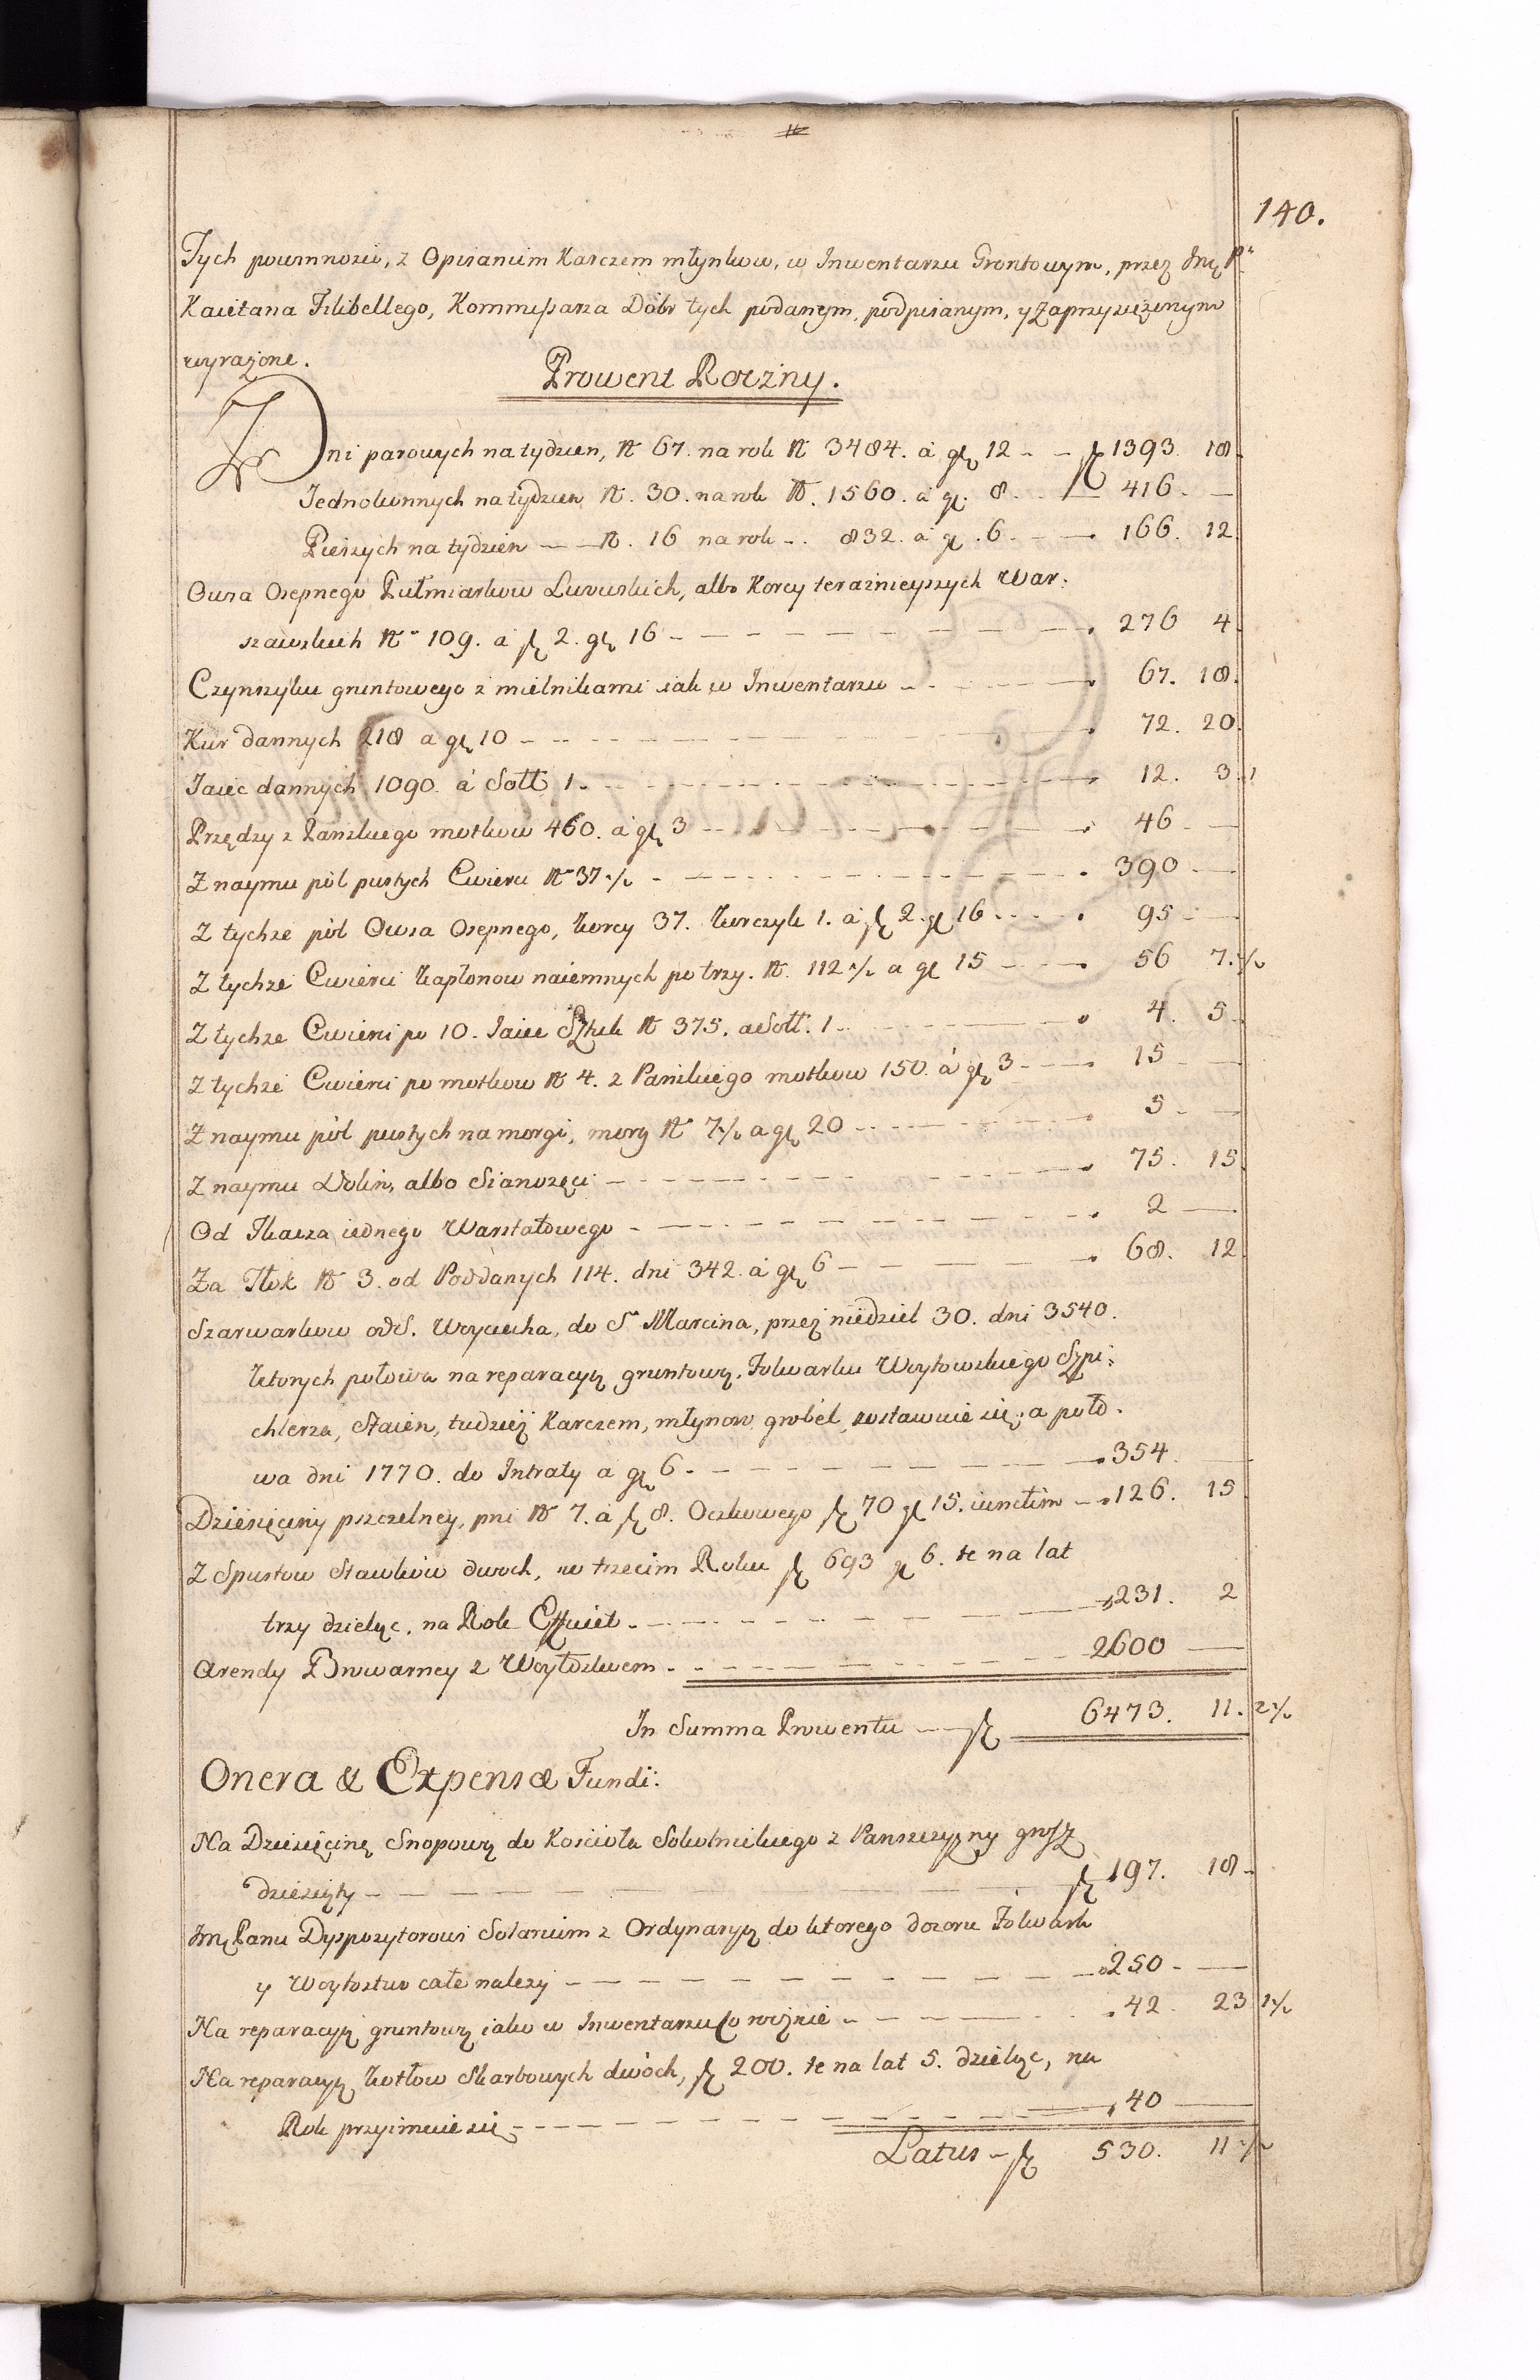 140.
Tych powinnosci, z Opisaniem Karczem młynkow, w Inwentarzu Grontowym, przez Jmę Pa
Kaietana Filibellego, Kommissarza Dóbr tych podanym, podpisanym, y zaprzysiężonym
wyrażone.
Prowent Roczny.
Z Dni parowych na tydzien, N 67. na rok N 3484. á gł 12 - - fł 1393. 18
Jednokonnych na tydzien N. 30. na rok N. 1560. a gł. 8. - - 416. —
Pieszych na tydzien - - N. 16 na rok - . 832. a gł. 6. - - 166. 12.
Owsa Osepnego Pułmiarkow Luvuskich, albo Korcy teraznieyszych War:
szawskich No 109. a fł 2. gł 16 - - - 276 4.
Czynszyku gruntowego z mielnikami iak w Inwentarzu - - 67. 18.
Kur dannych 218 a gł 10 - - - 72. 20.
Iaiec dannych 1090. á Soll 1. - - - 12. 3. 1
Przędzy z Panskiego motkow 460. á gł 3 - - - 46 - —
Z naymu pól pustych Cwierci N 37 ½ - - - 390 —
Z tychze pól Owsa Osepnego, korcy 37. korczyk 1. á fł 2. gł 16 - - - 95 - —
Z tychze Cwierci kapłonow naiemnych po trzy. N. 112 ½ a gł 15 - - - 56 7. ½
Z tychze Cwierci po 10. Iaiec Sztuk N 375. a Soll. 1 - - - 4. 5
Z tychze Cwierci po motkow N 4. z Panskiego motkow 150. á gł 3 - - - 15 - —
Z naymu pól pustych na morgi, morg N 7 ½ a gł 20 - - - 5 - —
Z naymu Dolin, albo Sianozęci - - - 75. 15.
Od Tkacza iednego Warstatowego - - - 2 —
Za Tłok N 3. od Poddanych 114. dni 342. á gł 6 - - - 68. 12.
Szarwarkow od S. Woyciecha, do S. Marcina, przez niedziel 30. dni 3540.
ktorych połowa na reparacyą gruntową. Folwarku Woytowskiego Szpi:
chlerza, Staien, tudzież Karczem, młynow grobel, zostawuie się; a poło.
wa dni 1770. do Intraty a gł 6 - - - 354. —
Dziesięciny pszczelney, pni N 7. á fł 8. Oczkowego fł 70 gł 15. iunctim - - 126. 15
Z Spustow Stawkow dwoch, w trzecim Roku fł 693 gł 6. te na lat
trzy dzieląc. na Rok Efficit - - - 231. 2
Arendy Browarney z Woytostwem - - - 2600 —
In Summa Prowentu - - fł 6473. 11. 2 ½
Onera & Expensæ Fundi:
Na Dziesięcinę Snopową do Kościoła Sokolnickiego z Panszczyzny grosz
dziesięty - - - fł 197. 18 -
Jmę Panu Dyspozytorowi Solarium z Ordynaryą do ktorego dozoru Folwark
y Woytostwo całe nalezy - - - 250 - —
Na reparacyą gruntową iako w Inwentarzu Co rocznie - - - 42. 23 1 ½
Na reparacyą kotłow Skarbowych dwóch, fł 200. te na lat 5. dzieląc, na
Rok przyimuie się - - - 40 —
Latus - fł 530. 11 ½